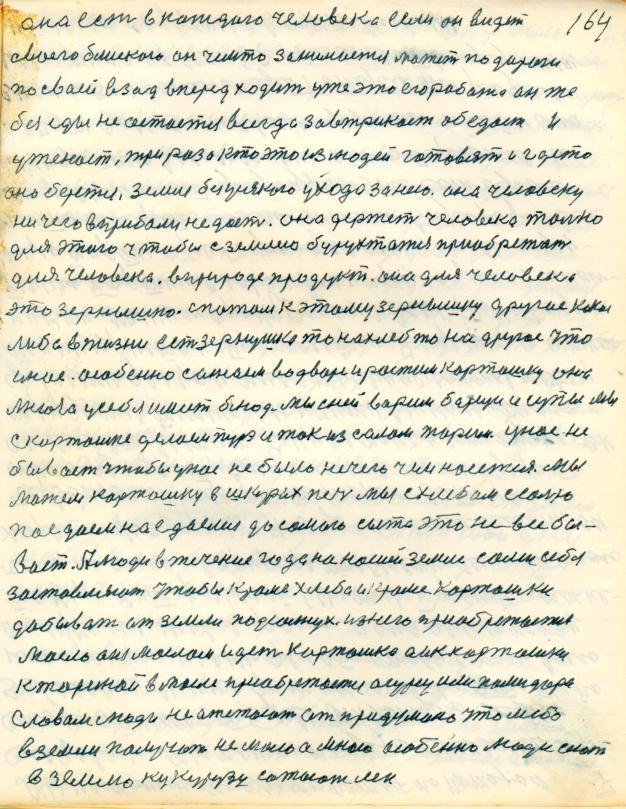 164
она ест в каждого человека если он видет
своего блиского он чемто занимается может по дороги
по сваей взад вперед ходит уже это его работа он же
без еды не астается всегда завтрикает обедает и
уженает, три раза ктоэто из людей готовят и гдето
оно берется, земля безуякого ухода за нею. она человеку
ничего в прибали не дает. она держет человека только
для этого чтобы с землею бурухтатся приобретат
для человека. в природе продукт. она для человека
это зернышко. спотом к этому зернышку другое какое
либа в жизни ест зернушка то на хлеб то на другое что
иное. особенно сажаем во дворе и ростим картошку она
многа у себя имеет блюд. мы с ней варим барщи и супы мы
с картошке делаем пурэ и так из салом жарим. у нас не
бывает чтобы у нас не было нечего чем носется. Мы
можем картошку в шкурах печ мы с хлебам с солю
поедаем наедаемся до самого сыта это не все бы-
вает. А люди в течение года на нашей земле сами себя
заставляют чтобы кроме хлеба и кроме картошки
дабыват от земли подсолнух. из него приобретается
масло а из маслом идет картошка а и к картошки
к жареной в масле приобретается агурец или памидора
словам люди не атстают от придумано что либо
в земли палучат не мало а много особенно люди сеют
в землю кукурузу сажают лен